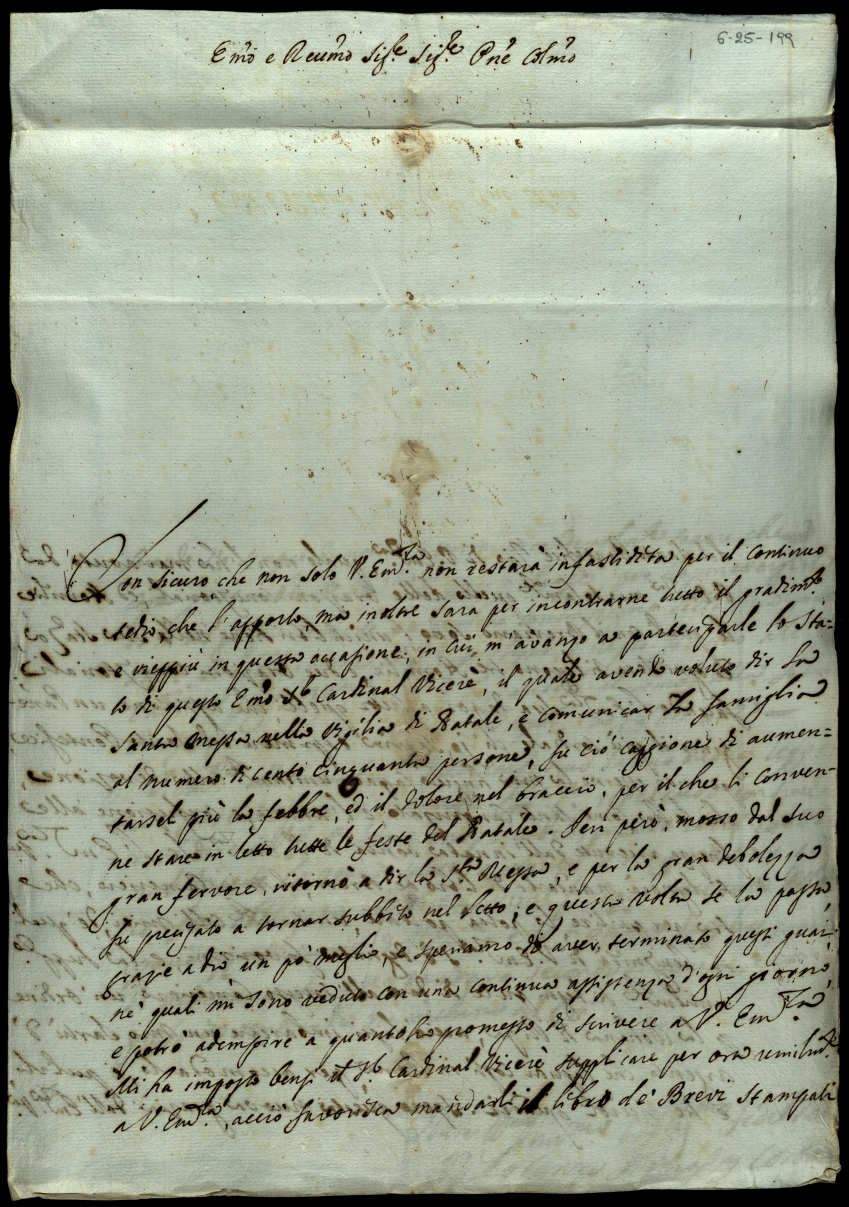 6-25-199
Em̃o e Reum̃o Sig.re Sig.re Pñe Colm̃o
Con sicuro che non solo V. Em.za non restarà infastidita per il continuo
tedio, che l'apporto, ma inoltre sara per incontrarne tutto il gradim.to
e vieppiù in questa occasione, in cui m'avanzo a participarle lo sta=
to di questo Em̃o Sr. Cardinal Vicerè, il quale avendo voluto dir la
Santa Messa nella Vigilia di Natale, e comunicar la famiglia
al numero di cento cinquanta persone, fu ciò caggione di aumen=
tarseli più la febbre, ed il dolore nel braccio, per il che li conven=
ne stare in letto tutte le feste del Natale. Ieri però, mosso dal suo
gran fervore, ritornò a dir la S.ta Messa, e per la gran debolezza
fù a tornar subbito nel letto; e questa volta se la passa,
grazie a dio un pò meglio, e speriamo di aver terminato questi guai
nè quali mi sono veduto con una continua assistenza d'ogni giorno,
e potrò adempire a quanto ho promesso di scrivere a V. Em.za
Mi ha imposto bensi il Sr. Cardinal Vicerè supplicare per ora umilm.te
a V. Em.za, acciò favorisca mandarli il libro de' Brevi stampati